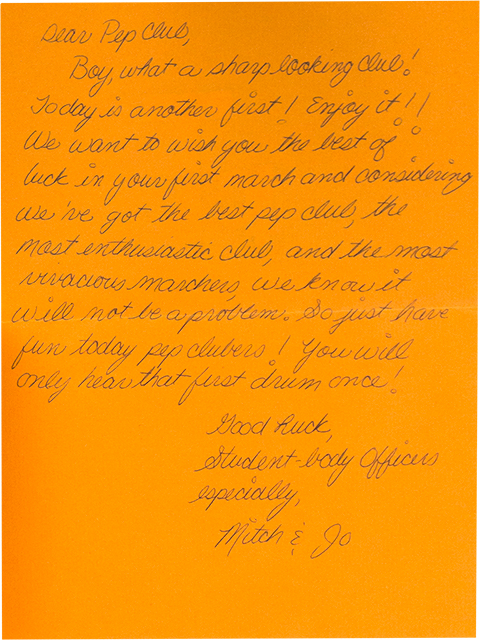 Dear Pep Club,
Boy, what a sharp looking club!
Today is another first! Enjoy it!!
We want to wish you the best of
luck in your first march and considering
we've got the best pep club, the
most enthusiastic club, and the most
vivacious marchers, we know it
will not be a problem. So just have
fun today pep clubers! You will
only hear that first drum once!
Good Luck,
Student-body Officers
especially,
Mitch & Jo